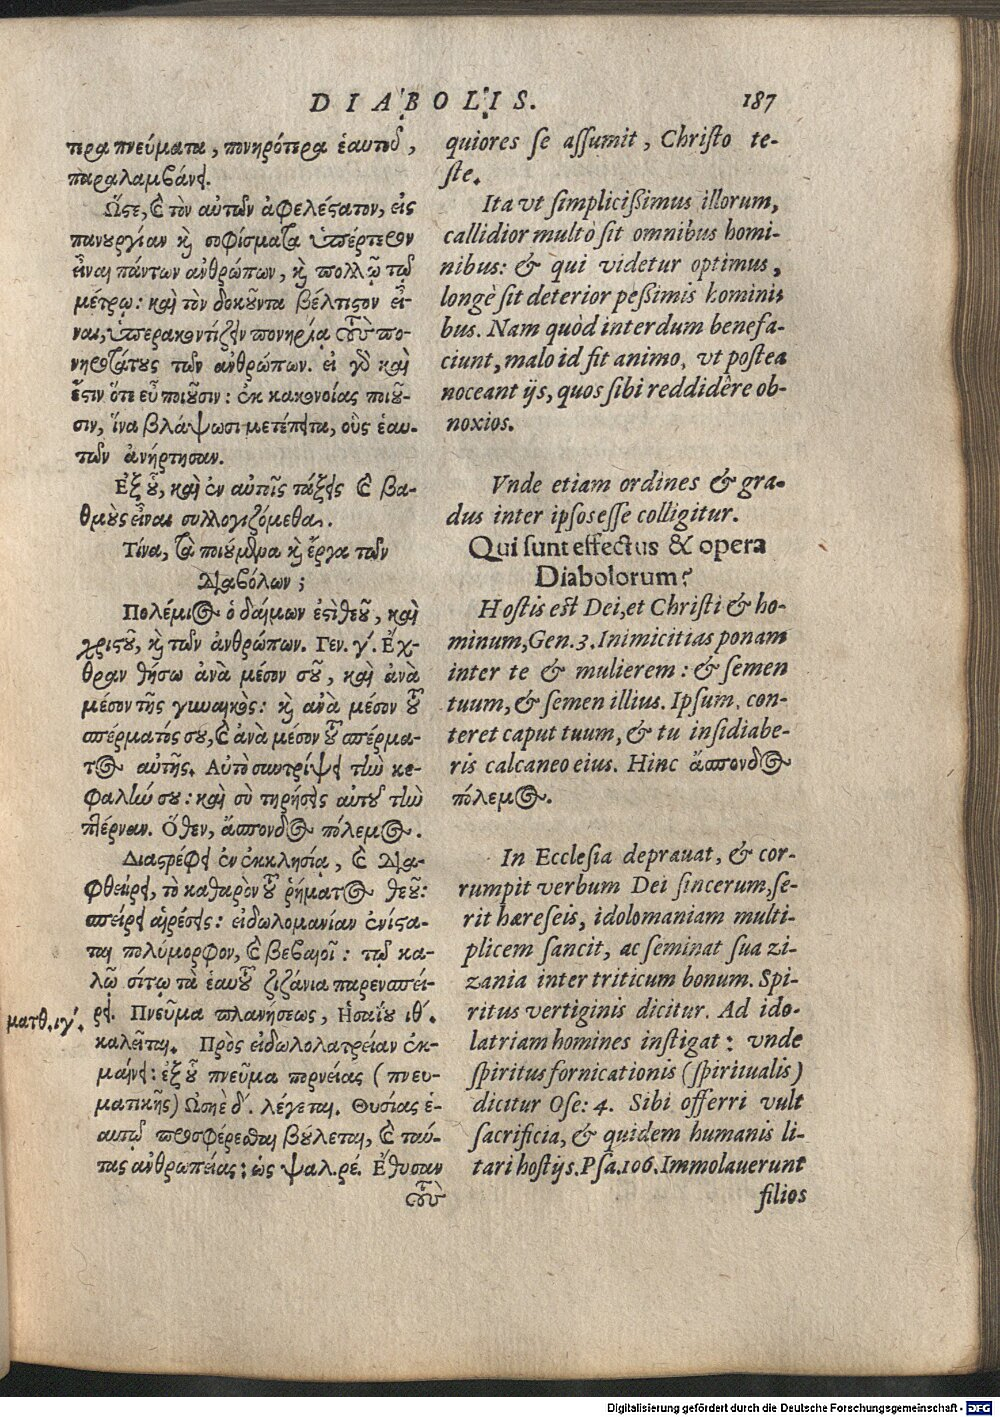 DIABOLIS. 187
τερα πνεύματα, πονηρότερα ἑαυτοῦ,
παραλαμβάνει.
Ὥστε, καὶ τὸν αὐτῶν ἀφελέστατον, εἰς
πανουργίαν καὶ σοφίσματα ὑπέρτερον
εἶναι πάντων ἀνθρώπων, καὶ πολλῷ τῷ
μέτρῳ: καὶ τὸν δοκοῦντα βέλτιστον εἶ-
ναι, ὑπερακοντίζειν πονηρίᾳ τοὺς πο-
νηροτάτους τῶν ἀνθρώπων. εἰ γὰρ καὶ
ἔστιν ὅτε εὖ ποιοῦσιν: ἐκ κακονοίας ποιοῦ-
σιν, ἵνα βλάψωσι μετέπειτα, οὓς ἑαυ-
τῶν ἀνήρτησαν.
Ἐξ οὗ, καὶ ἐν αὐτοῖς τάξεις καὶ βα-
θμοὺς εἶναι συλλογιζόμεθα.
Τίνα, τὰ ποιούμενα καὶ ἔργα τῶν
Διαβόλων;
Πολέμιος ὁ δαίμων ἐστὶ θεοῦ, καὶ
χριστοῦ, καὶ τῶν ἀνθρώπων. Γεν. γ΄. Ἔχ-
θραν θήσω ἀνὰ μέσον σοῦ, καὶ ἀνὰ
μέσον τῆς γυναικὸς: καὶ ἀνὰ μέσον τοῦ
σπέρματός σου, καὶ ἀνὰ μέσον τοῦ σπέρμα-
τος αὐτῆς. Αὐτὸ συντρίψει τὴν κε-
φαλήν σου: καὶ σὺ τηρήσεις αὐτοῦ τὴν
πτέρναν. Ὅθεν, ἄσπονδος πόλεμος.
Διαστρέφει ἐν ἐκκλησίᾳ, καὶ δια-
φθείρει, τὸ καθαρὸν τοῦ ῥήματος θεοῦ:
σπείρει αἱρέσεις: εἰδωλομανίαν ἐνίστα-
ται πολύμορφον, καὶ βεβαιοῖ: τῷ κα-
λῷ σίτῳ τὰ ἑαυτοῦ ζιζάνια παρενσπεί-
ματθ. ιγ΄.
ρει. Πνεῦμα πλανήσεως, Ἡσαΐου ιθ΄.
καλεῖται. Πρὸς εἰδωλολατρείαν ἐκ-
μαίνει: ἐξ οὗ πνεῦμα πορνείας (πνευ-
ματικῆς) Ὡσηὲ δ΄. λέγεται. Θυσίας ἑ-
αυτῷ προσφέρεσθαι βούλεται, καὶ ταύ-
τας ἀνθρωπείας: ὡς ψαλ. ρέ. Ἔθυσαν
τοὺς
quiores se assumit, Christo te-
ste.
Ita vt simplicißimus illorum,
callidior multò sit omnibus homi-
nibus: & qui videtur optimus,
longè sit deterior peßimis homini
bus. Nam quòd interdum benefa-
ciunt, malo id fit animo, vt postea
noceant ijs, quos sibi reddidêre ob-
noxios.
Vnde etiam ordines & gra-
dus inter ipsos esse colligitur.
Qui sunt effectus & opera
Diabolorum?
Hostis est Dei, et Christi & ho-
minum, Gen. 3. Inimicitias ponam
inter te & mulierem: & semen
tuum, & semen illius. Ipsum, con-
teret caput tuum, & tu insidiabe-
ris calcaneo eius. Hinc ἄσπονδος
πόλεμος.
In Ecclesia deprauat, & cor-
rumpit verbum Dei sincerum, se-
rit hæreseis, idolomaniam multi-
plicem sancit, ac seminat sua zi-
zania inter triticum bonum. Spi-
ritus vertiginis dicitur. Ad ido-
latriam homines instigat: vnde
spiritus fornicationis (spiritualis)
dicitur Ose: 4. Sibi offerri vult
sacrificia, & quidem humanis li-
tari hostijs. Psa. 106. Immolauerunt
filios
Digitalisierung gefördert durch die Deutsche Forschungsgemeinschaft - DFG